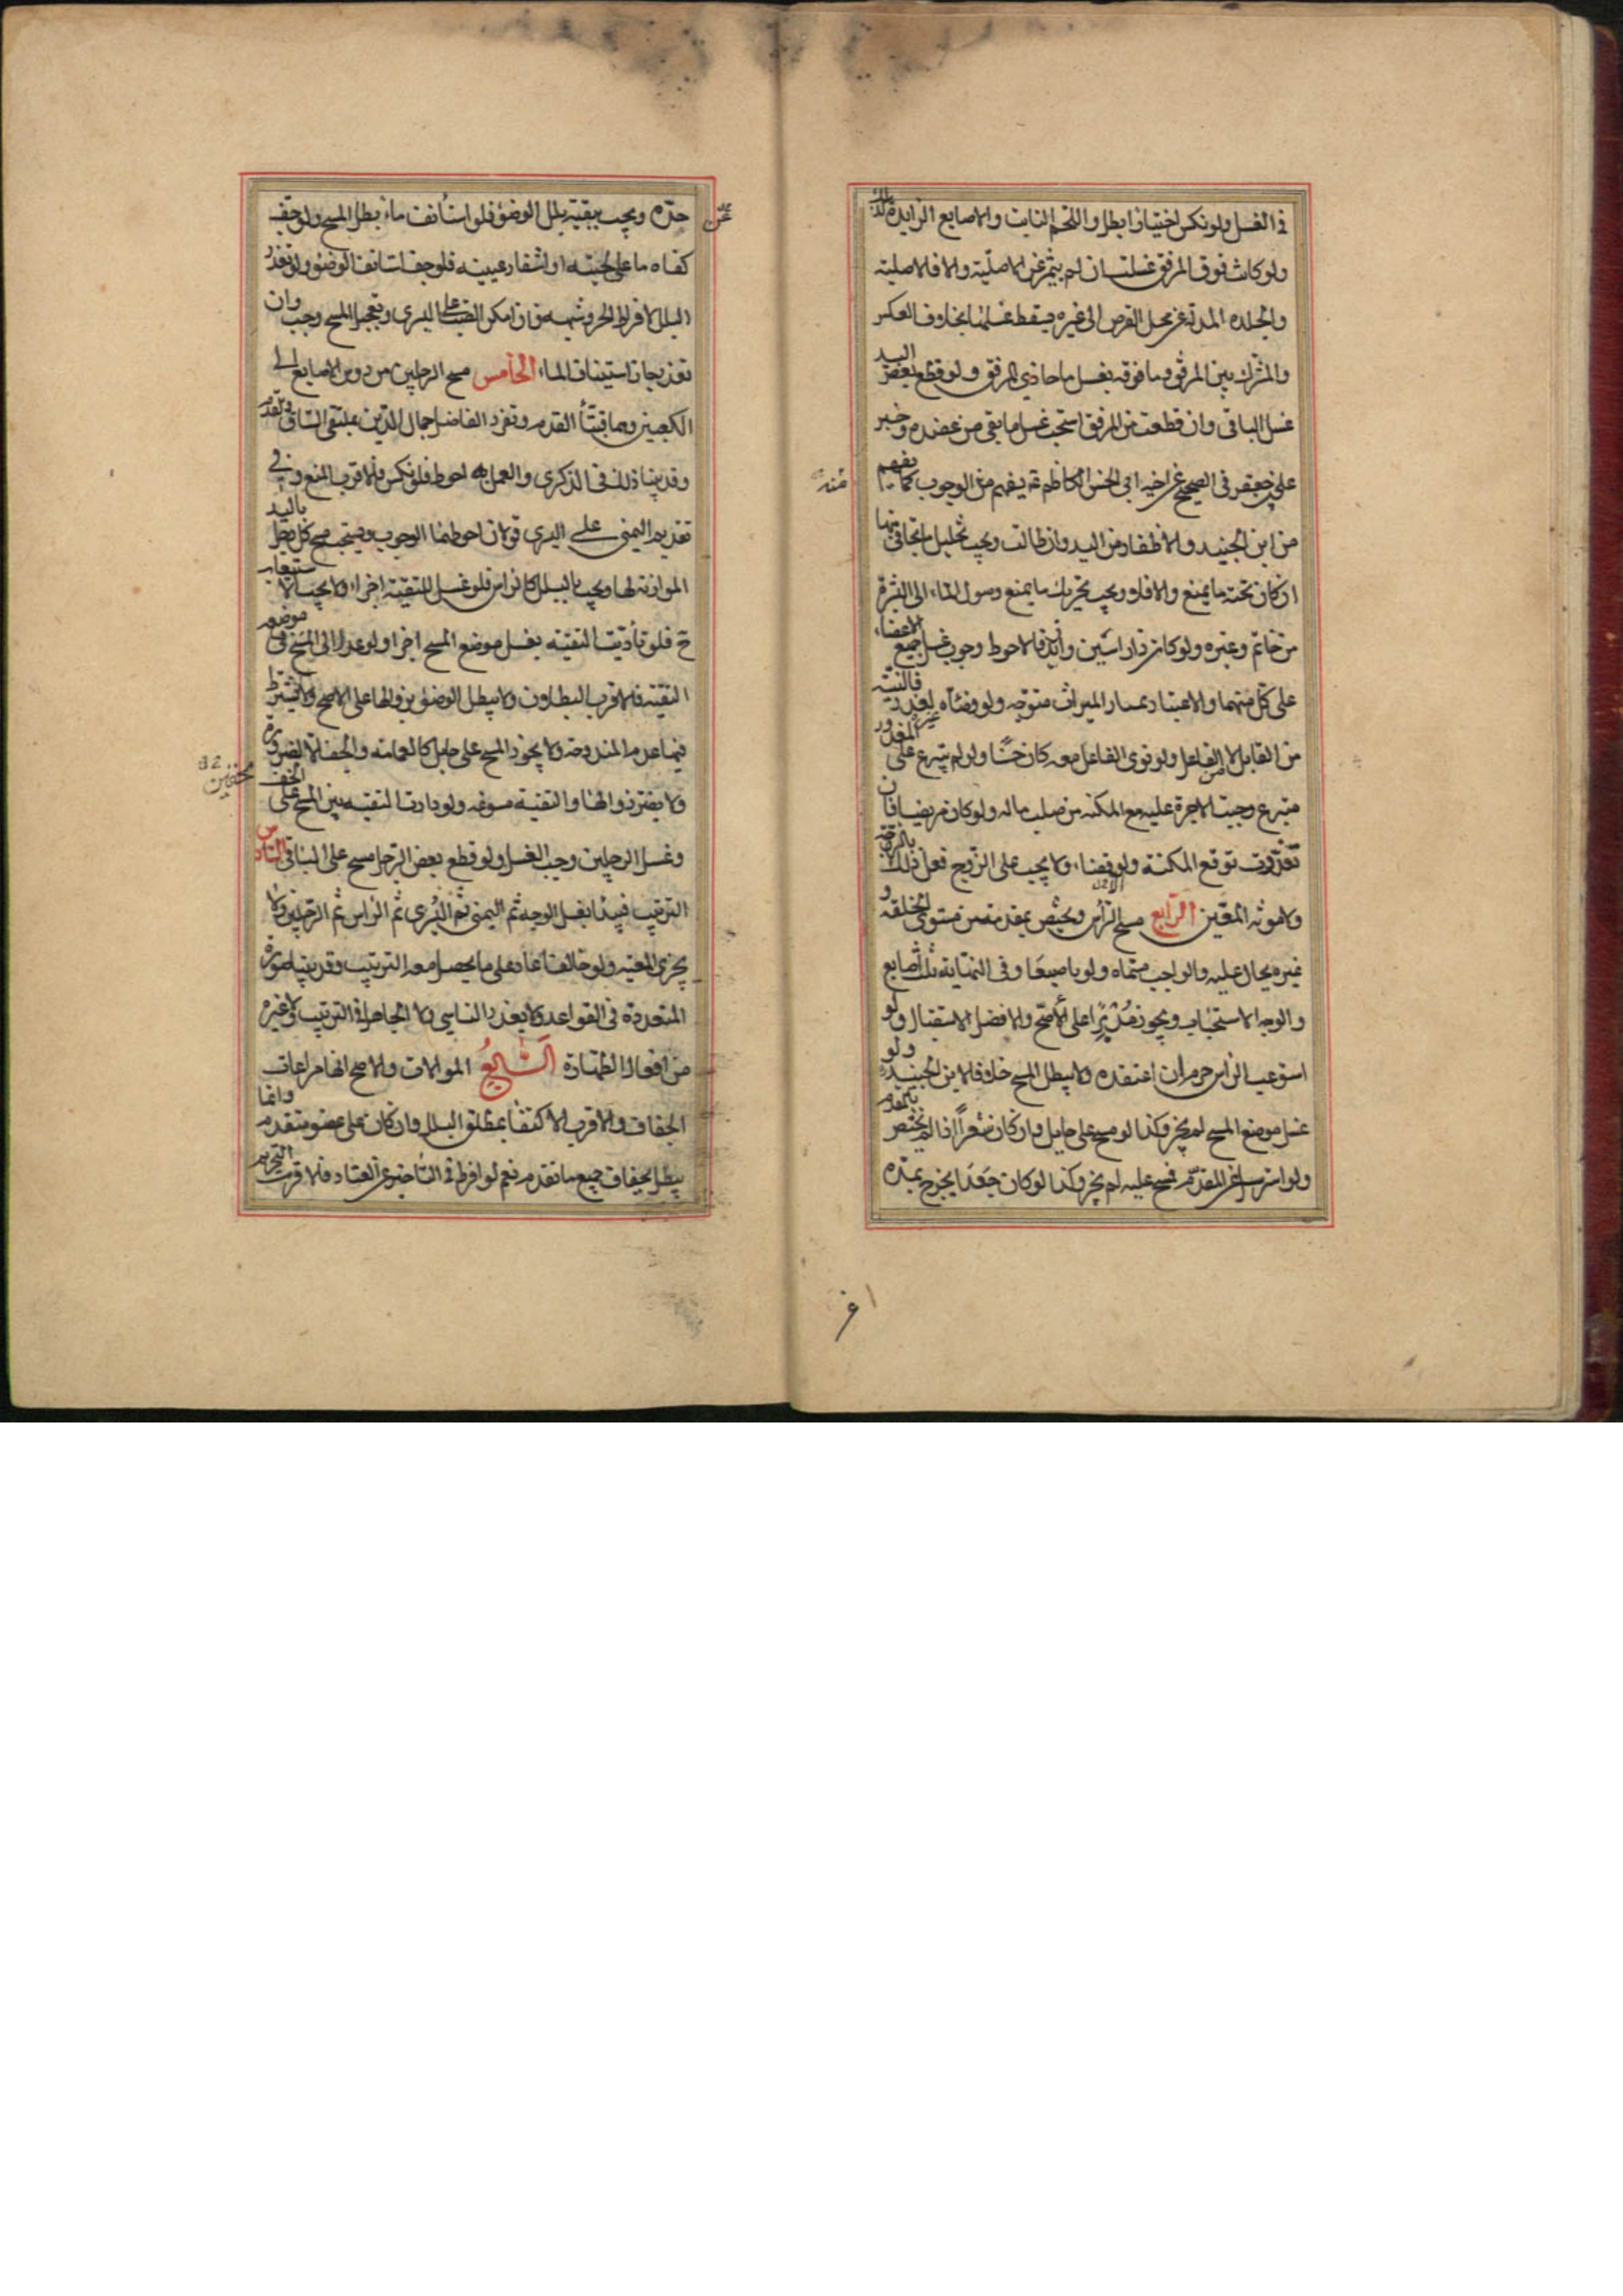 في الغسل ولو نكس اختيارا بطل واللحم النابت والاصابع الزايدة كذلك
ولو كانت فوق المرفق غسلتا ان لم يتميز عن الاصلية والا فالاصلية
والجلده المتدلية عن محل الفرض الى غيره فيسقط غسلها بخلاف العكس
والمشترك بين المرفق وما فوقه يغسل ما حاذى المرفق ولو قطع بعض اليد
غسل الباقى وان قطعت من المرفق استحب غسل ما بقى من عضده وخبر
على بن جعفر فى الصحيح عن اخيه ابى الحسن الكاظم ع يفهم منه الوجوب كما يفهم
من ابن الجنيد والاظفار من اليد وان طالت ويجب تخليل ما تجافى منها
ان كان تحته ما يمنع والا فلا ويجب تحريك ما يمنع وصول الماء الى البشرة
من خاتم وغيره ولو كان ذا راسين وابدين فالاحوط وجوب غسل جميع الاعضاء
على كل منهما والاعتبار بمسار الميراث متوجه ولو وضئاه لعذر فالنية
من القابل لا من الفاعل ولو نوى الفاعل معه كان حسنا ولو لم يتبرع على غير المقدور
متبرع وجبت الاجرة عليه مع المكنه من صلب ماله ولو كان مريضا فان
تعذرت توقع المكنة ولو قضاء ولا يجب على الزوج فعل ذلك بالزوجة
ولا مونه المعين الرابع مسح الراس ويختص بمقدمه من مستوى الخلقه و
غيره يحال عليه والواجب مسماه ولو باصبع وفى النهاية ثلث اصابع
والوجه الاستحباب ويجوز مدبرا على الاصح والافضل الاستقبال ولو
استوعب الراس حرم ان اعتقده ولا يبطل المسح خلافا لابن الجنيد ولو
غسل موضع المسح لم يجز وكذا لو مسح على حايل وان كان شعرا اذا لم يختص بالمقدم
ولو استرسل عن المقدم فمسح عليه لم يجز وكذا لو كان جعدا يخرج بمده
عن
حده ويجب ببقية بلل الوضوء فلو استانف ماء بطل المسح ولو جف
كفاه ما على لحيته او اشفار عينيه فلو جف استانف الوضوء ولو تعذر
البلل لافراط الحر وشبهه فان امكن الصب على اليسرى وتعجيل المسح وجب وان
تعذر جاز استيناف الماء الخامس مسح الرجلين من دوس الاصابع الى
الكعبين وهما قبتا القدم وتفرد الفاضل جمال الدين بملتقى الساق والقدم
وقد بينا ذلك فى الذكرى والعمل به احوط فلو نكس فالاقرب المنع وفى
تقديم اليمنى على اليسرى قولان احوطهما الوجوب ويستحب مسح كل رجل باليد
الموازنه لها ويجب بالبلل كالراس فلو غسل للتقية اجزاء ولا يجب الاستيعاب
ح فلو تأدت التقيته بغسل موضع المسح اجزا ولو عدل الى المسح فى موضع
التقيته فالاقرب البطلان ولا يبطل الوضوء بزوالها على الاصح ولا يشترط
فيها عدم المندوحه ولا يجوز المسح على حايل كالعمامه والخف الا لضرورة
ولا يضر زوالها والتقية مسوغه ولو دارت التقيه بين المسح على الخف
وغسل الرجلين وجب الغسل ولو قطع بعض الرجل مسح على الباقى السادس
الترتيب فيبدا بغسل الوجه ثم اليمنى ثم اليسرى ثم الراس ثم الرجلين ولا
يجزى المعيه ولو خالف اعاد على ما يحصل معه الترتيب وقد بينا صوره
المتعددة فى القواعد ولا يعذر الناسى ولا الجاهل فى الترتيب ولا غيره
من افعال الطهارة السابع الموالات والاصح انها مراعات
الجفاف والاقرب الاكتفا بمطلق البلل وان كان على عضو متقدم وانما
يبطل بجفاف جميع ما تقدم نعم لو افرط فى التاخير عن المعتاد فالاقرب التحريم